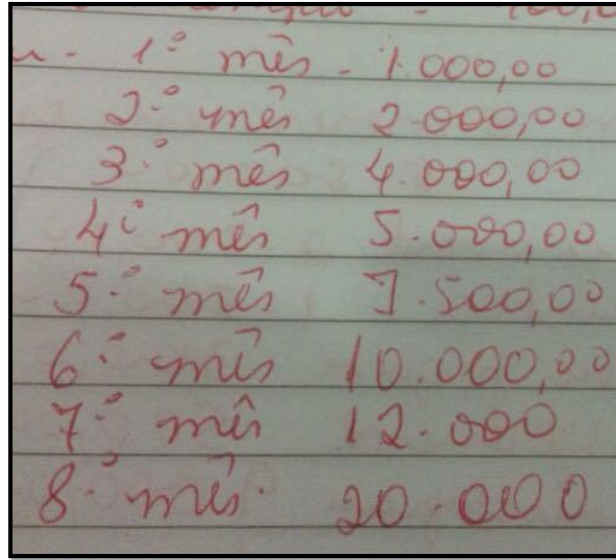 1º mês - 1.000,00
2º mês 2.000,00
3º mês 4.000,00
4º mês 5.000,00
5º mês 7.500,00
6º mês 10.000,00
7º mês 12.000
8º mês. 20.000